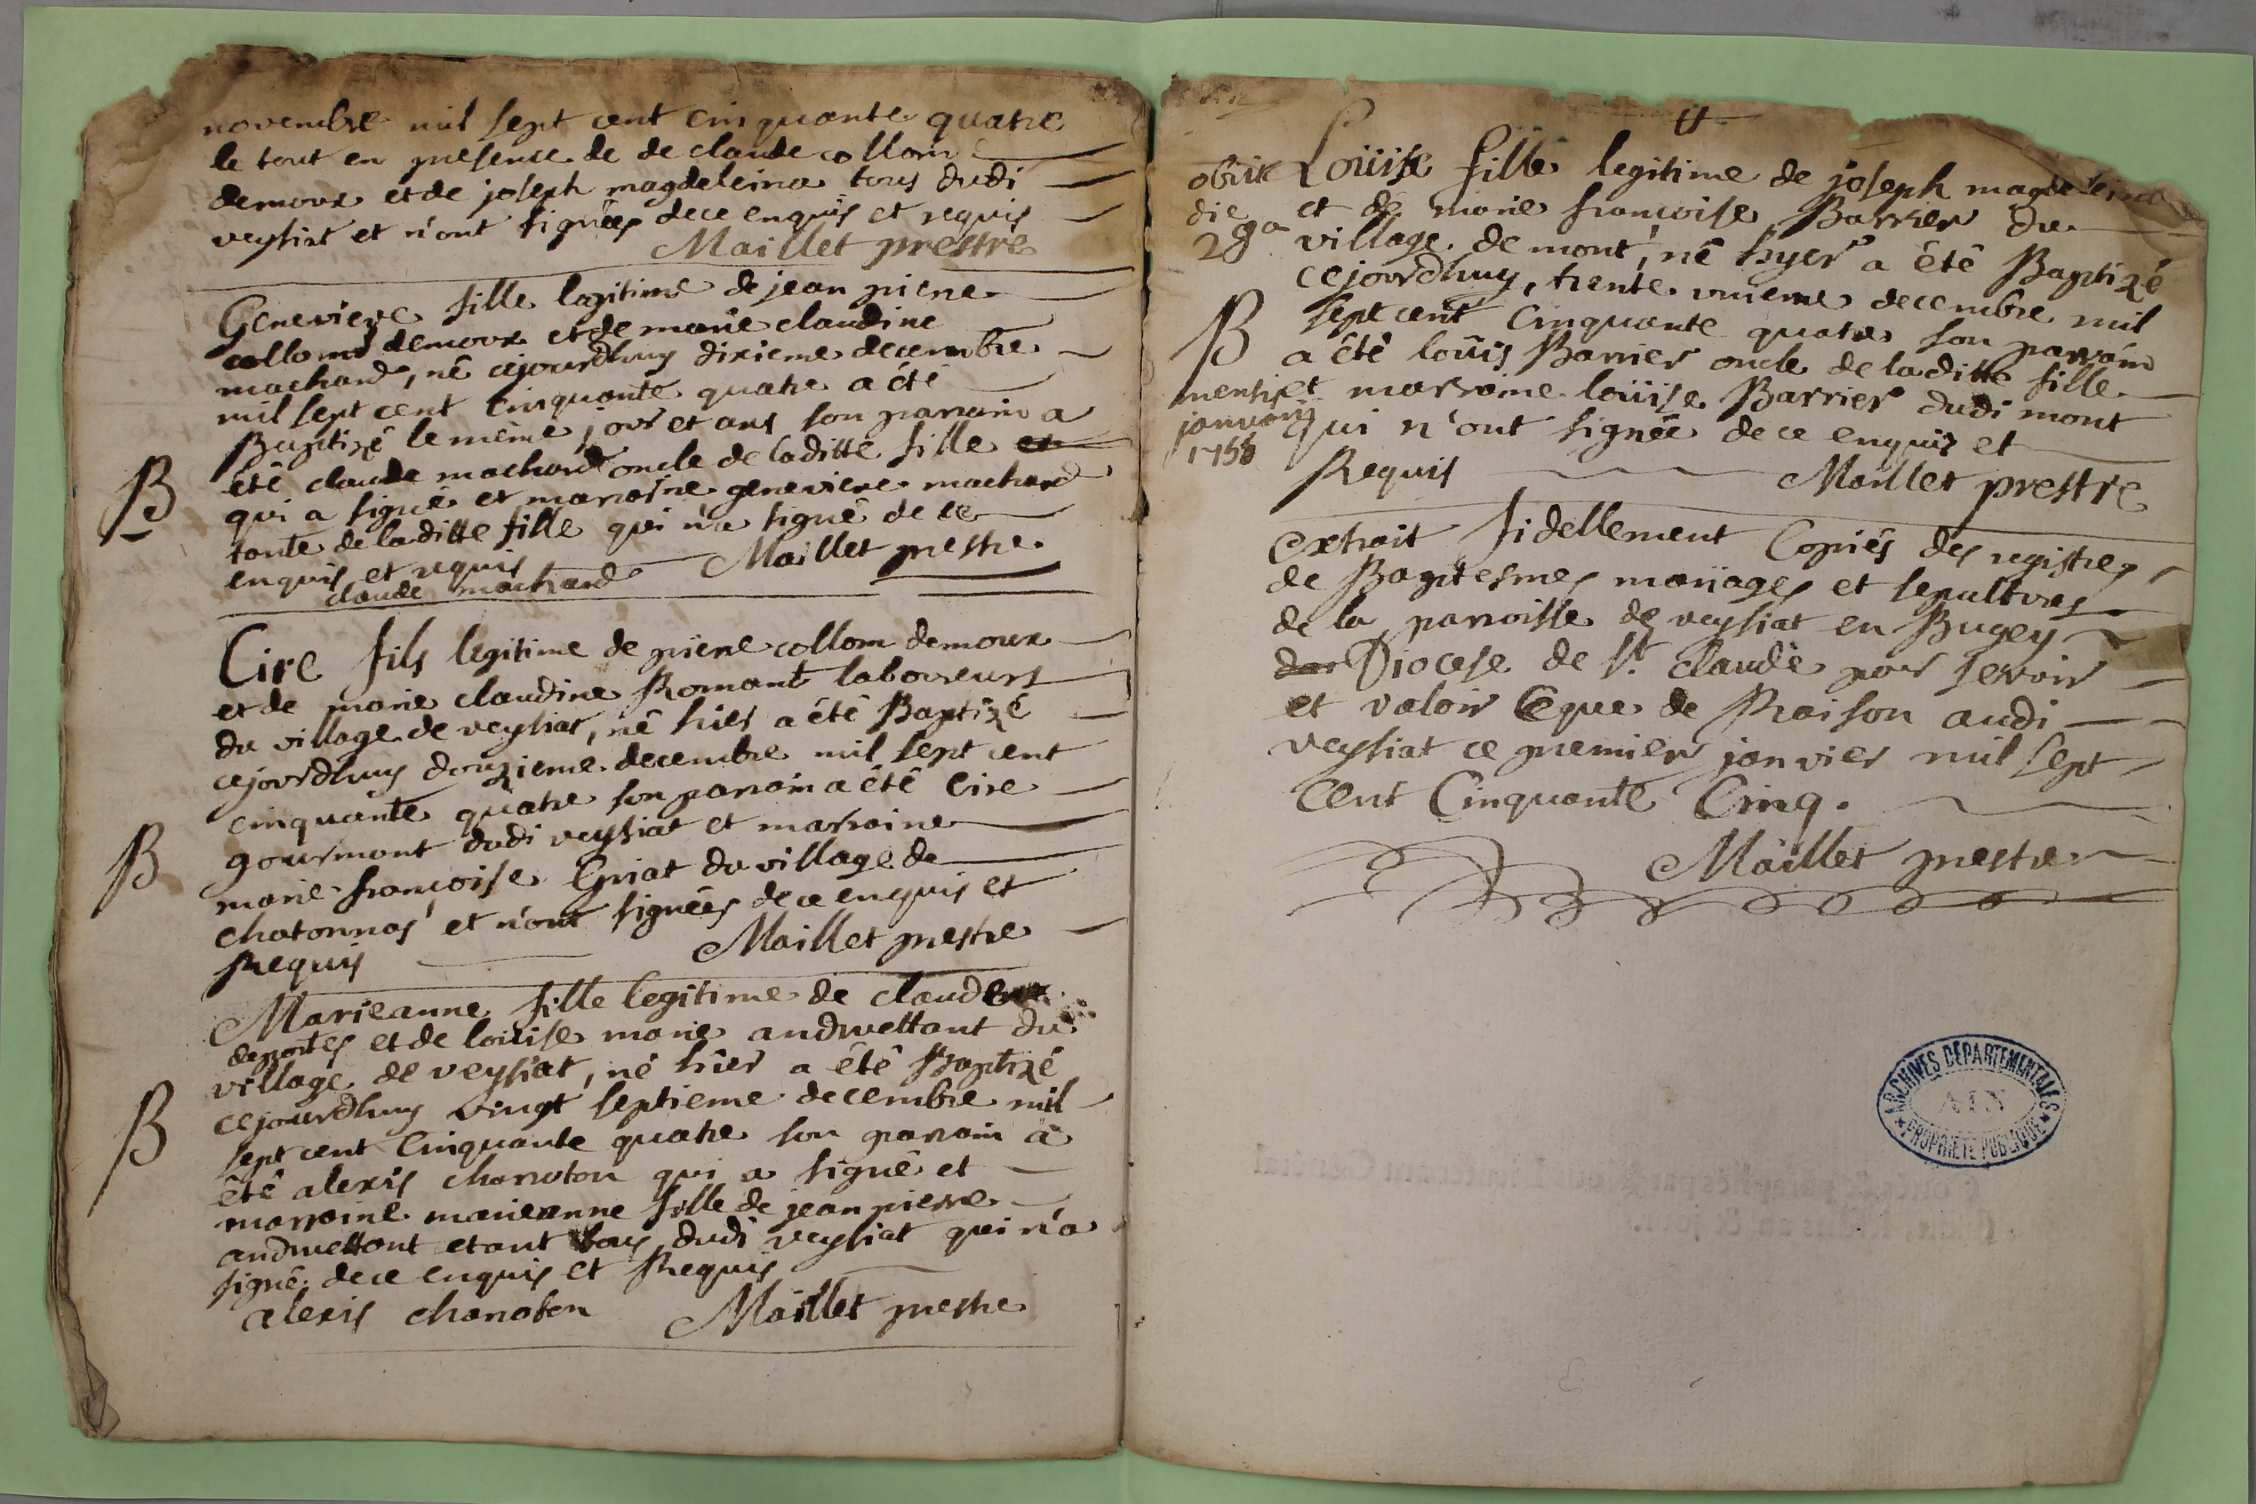 novembre mil sept cent cinquante quatre
le tout en presence de de claude collom
demoux et de joseph magdeleina tous dudi
veysiat et n'ont signées de ce enquis et requis
Maillet prestre
Genevieve fille legitime de jean pierre
collomd demoux et de marie claudine
machard, né cejourdhuy dixieme decembre
mil sept cent cinquante quatre a été
Baptizé le même jour et ans son parrain a
B
été claude machard oncle de laditte fille et
qui a signé et marraine genevieve machard
tante de laditte fille qui n'a signé de ce
enquis et requis Maillet prestre
claude machard
Cire fils legitime de pierre collom demoux
et de marie claudine Romant laboureurs
du village de veysiat, né hier a été Baptizé
cejourdhuy douzieme decembre mil sept cent
cinquante quatre son parrain a été Cire
B
gourmont dudi veysiat et marraine
marie françoise Griat du village de
chatonnas et n'ont signées de ce enquis et
Requis Maillet prestre
Marieanne fille legitime de claude
deportes et de loüise marie andruettant du
village de veysiat, né hier a été Baptizé
B
cejourdhuy vingt septieme decembre mil
sept cent Cinquante quatre son parrain a
été alexis charroton qui a signé et
marraine marieanne fille de jean pierre
andruettont etant tous dudi veysiat qui n'a
signé de ce enquis et Requis
alexis charroton Maillet prestre
11
obiit
die
29a
B
mensis
januarii
1755
Loüise fille legitime de joseph magdeleina
et de marie françoise Barrier du
village de mont, né hyer a été Baptizé
cejourdhuy, trente unieme decembre mil
sept cent Cinquante quatre son parrain
a été loüis Barrier oncle de laditte fille
et marraine loüise Barrier dudi mont
qui n'ont signée de ce enquis et
Requis Maillet prestre
Extrait fidellement Copiés des registres
de Baptesmes mariages et sepultures
de la parroisse de veysiat en Bugey
Diocese de St. claude pour servir
et valoir ce que de Raison audi
veysiat ce premier janvier mil sept
Cent Cinquante Cinq.
Maillet prestre
ARCHIVES DÉPARTEMENTALES
AIN
PROPRIÉTÉ PUBLIQUE